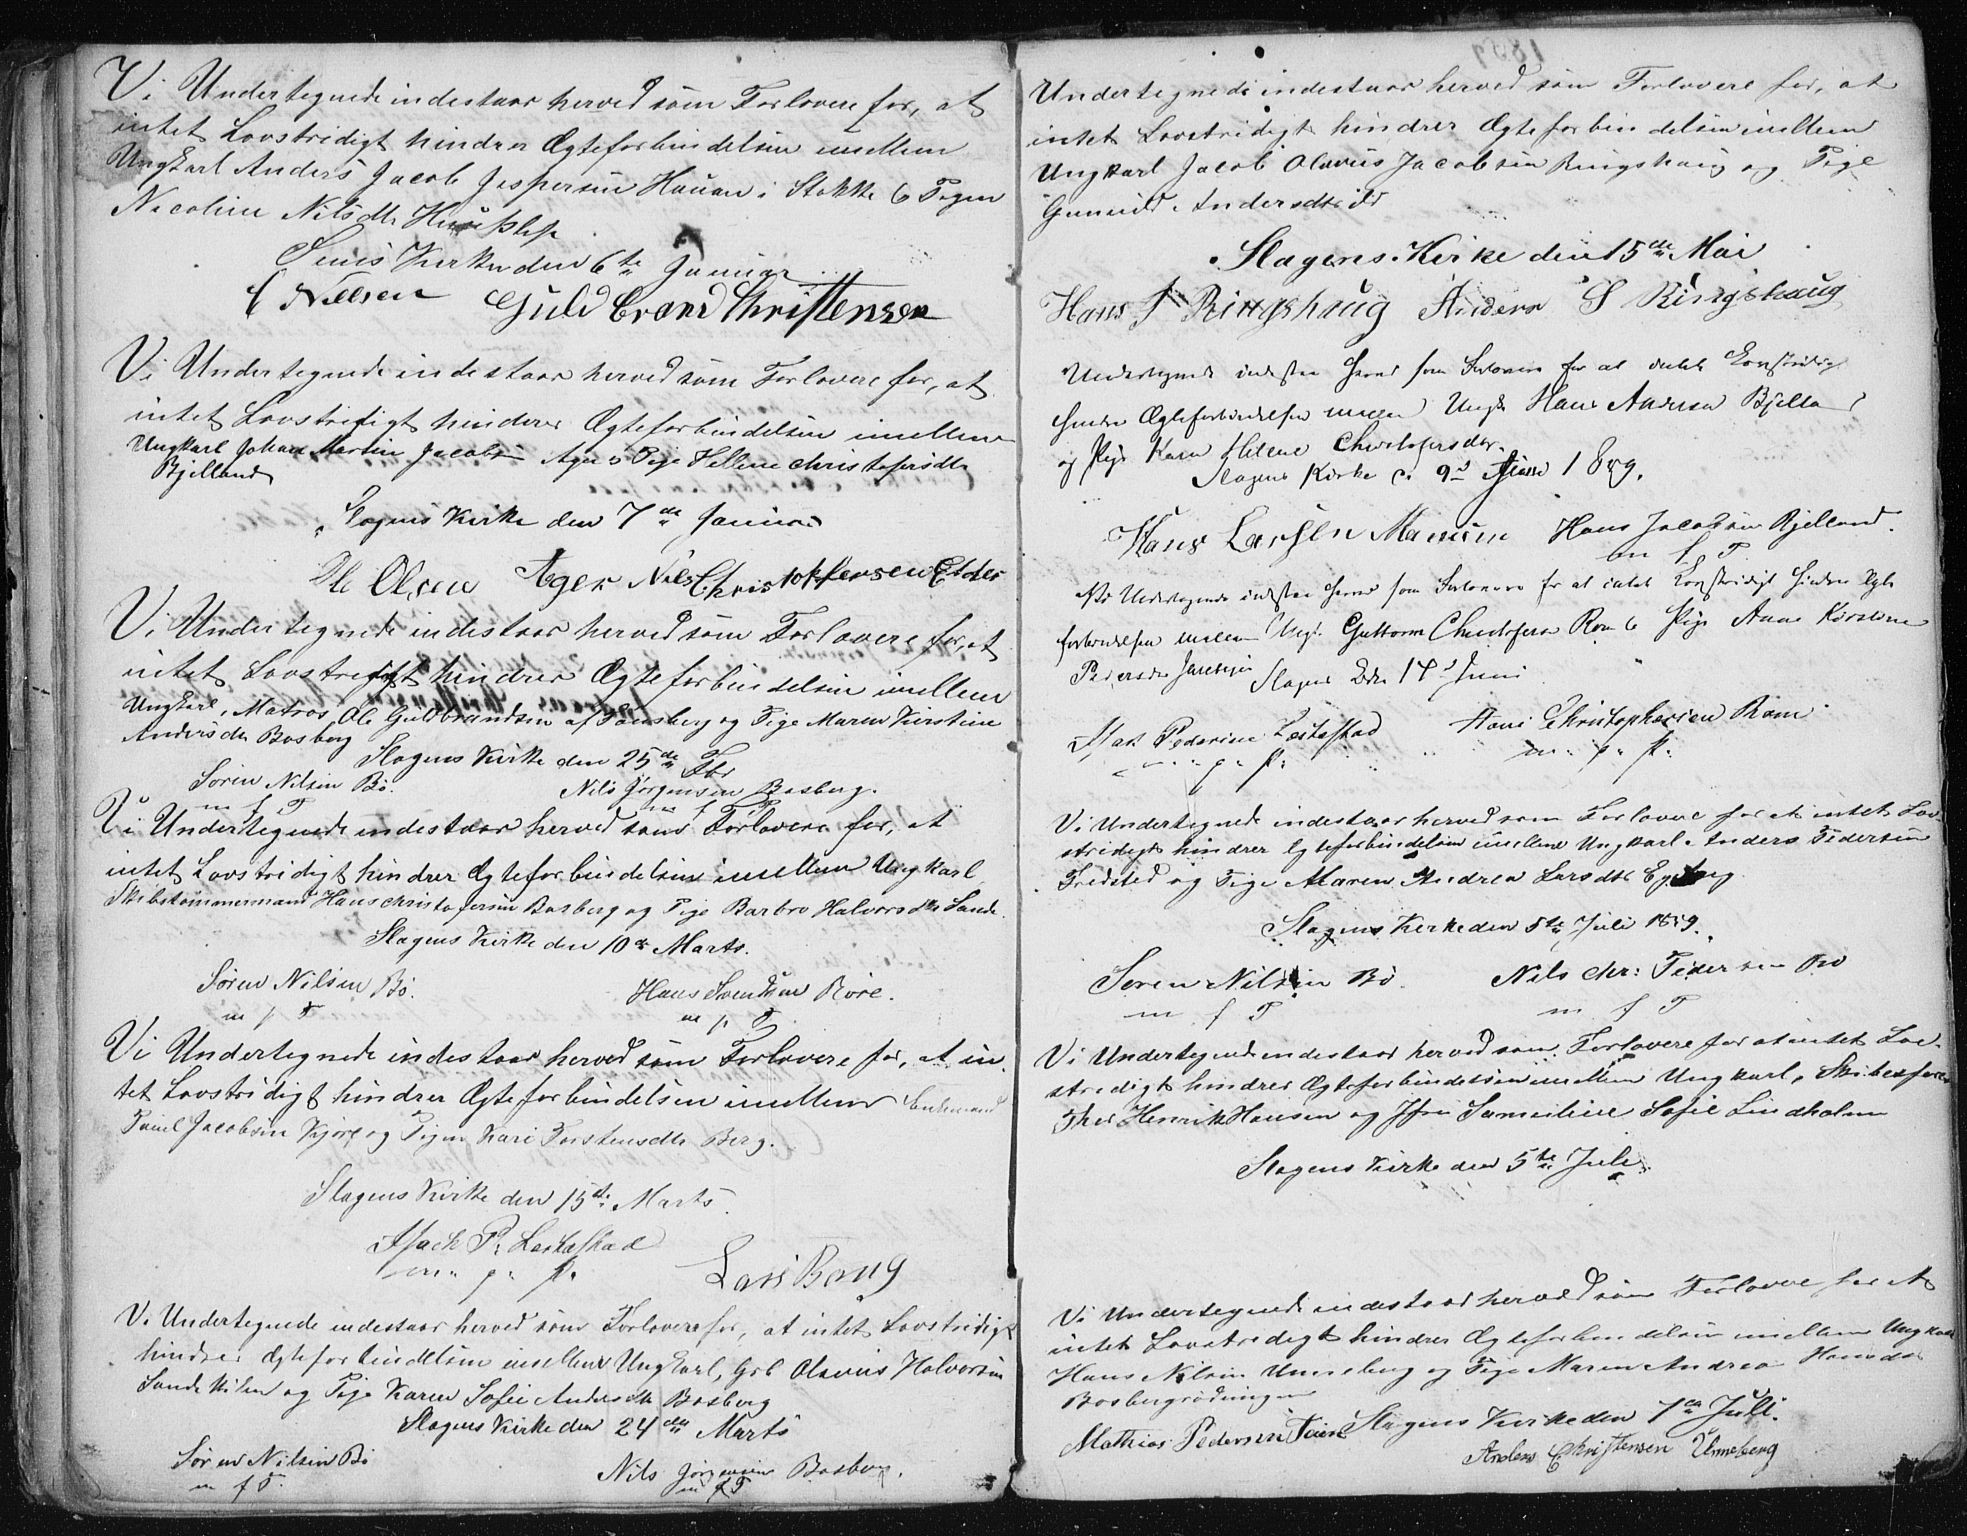 Vi Undertegnede indestaar herved som Forlovere for, at
intet Lovstridigt hindrer Ægteforbindelsen imellem
Ungkarl Anders Jacob Jespersen Hauan i Stokke & Pigen
Nicoline Nilsdtr
Sems Kirke den 6te Januar
Nielsen Guldbrand Christensen
Vi Undertegnede indestaar herved som Forlovere for, at
intet Lovstridigt hinderer Ægteforbindelsen imellem
Ungkarl Johan Martin Jacobs Ager & Pige Hellene Christofersdtr
Bjelland
Slagens Kirke den 7de Januar
Ole Olsen Ager Nils Christoffersen
Vi Undertegnede indestaar herved som Forlovere for, at
intet Lovstridigt hindrer Ægteforbindelsen imellem
Ungkarl, Matros Ole Guldbrandsen af Tønsberg og Pige Maren Kirstine
Andersdtr Basberg
Slagens Kirke den 25de Fbr
Søren Nilsen Bø. Nils Jørgensen Basberg.
m f P m f P
Vi Undertegnede indestaar herved som Forlovere for, at
intet Lovstridigt hindrer Ægteforbindelsen imellem Ungkarl
Skibstømmermand Hans Christofersen Basberg og Pige Barbro Halvorsdtr Sande.
Slagens Kirke den 10de Marts.
Søren Nilsen Bø. Hans Svendsen Røre.
m p P m p P
Vi Undertegnede indestaar herved som Forlovere for, at in-
tet Lovstridigt hindrer Ægteforbindelsen imellem Enkemand
Paul Jacobsen og Pigen Kari Torstensdtr Berg.
Slagens Kirke den 15de Marts.
Isach P. Leitestad
m. p. p. Lars Baug
Vi Undertegnede indestaar herved som Forlovere for, at intet Lovstridigt
hindrer Ægteforbindelsen imellem Ungkarl, Olavus Halvorsen
og Pige Karen Sofie Andersdtr Basberg
Slagens Kirke den 24de Marts
Søren Nilsen Bø Nils Jørgensen Basberg.
m f P. m f P
1859
Undertegnede indestaar herved som Forlovere for, at
intet Lovstridigt hindrer Ægteforbindelsen imellem
Ungkarl Jacob Olavus Jacobsen Ringshaug og Pige
Gunnild Andersdtr
Slagens Kirke den 15de Mai
Hans J Ringshaug Anders S Ringshaug
Undertegnede indestaa herved som Forlovere for at intet Lovstridigt
hindre Ægteforbindelsen mellem Ungk Hans Andersen Bjelland
og Pige Karen Helene Christofersdtr.
Slagens Kirke d. 9d Juni 1859.
Hans Larssen Hans Jacobsen Bjelland.
m f P
Vi Undertegnede indestaa herved som Forlovere for at intet Lovstridigt hindre Ægte
forbindelsen mellem Ungk. Guttorm Christofersen Rom & Pige Anne Kirstine
Pedersdtr
Slagens 17d Juni
Isak Pedersen Leitestad Hans Christophersen Rom.
m. p. p. m. p. p.
Vi Undertegnede indestaar herved som Forlovere for at intet Lov-
stridigt hindrer Ægteforbindelsen imellem Ungkarl Anders Pedersen
og Pige Maren Andrea Larsdtr
Slagens Kirke den 5te Juli 1859.
Søren Nilsen Bø. Nils Chr: Pedersen Bø
m f P m f P
Vi Undertegnede indestaar herved som Forlovere for at intet Lov-
stridigt hindrer Ægteforbindelsen imellem Ungkarl, Skibsfører
Thor Henrik Hansen og Jfr Samueline Sofie Lindholm
Slagens Kirke den 5te Juli.
Vi Undertegnede indestaar herved som Forlovere for at
intet Lovstridigt hindrer Ægteforbindelsen imellem Ungkarl
Hans Nilsen Unneberg og Pige Maren Andrea Hansdtr
Basbergrødningen
Slagens Kirke den 7de Juli.
Mathias Pedersen Anders Christensen Unneberg